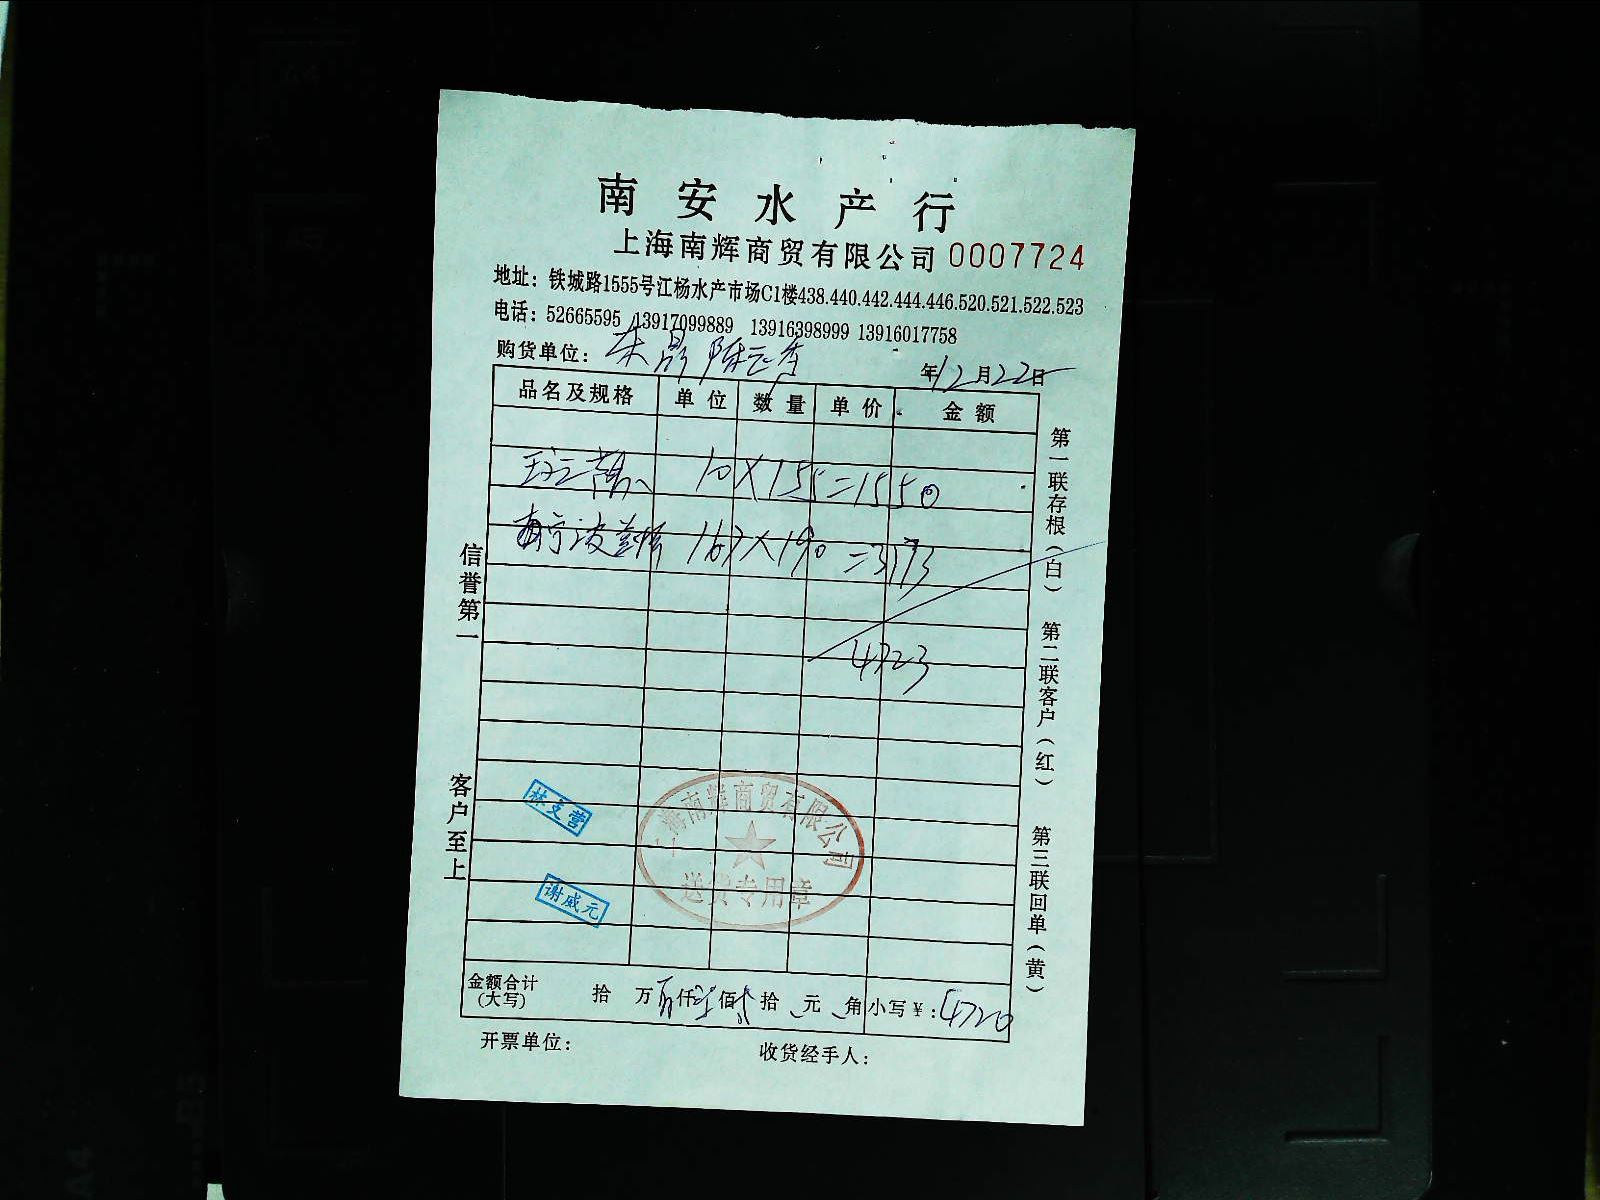 南安水产行
上海南辉商贸有限公司 0007724
地址：铁城路1555号江杨水产市场C1楼438.440.442.444.446.520.521.522.523
电话：52665595 13917099889 13916398999 13916017758
购货单位：
年12月22日
品名及规格 单位 数量 单价 金额
10×155=1550
167×190=3173
4723
林支营
上海南辉商贸有限公司
送货专用章
谢威元
金额合计（大写） 拾 万 仟 佰 拾 元 角 小写￥：4720
开票单位： 收货经手人：
信誉第一
客户至上
第一联存根（白） 第二联客户（红） 第三联回单（黄）